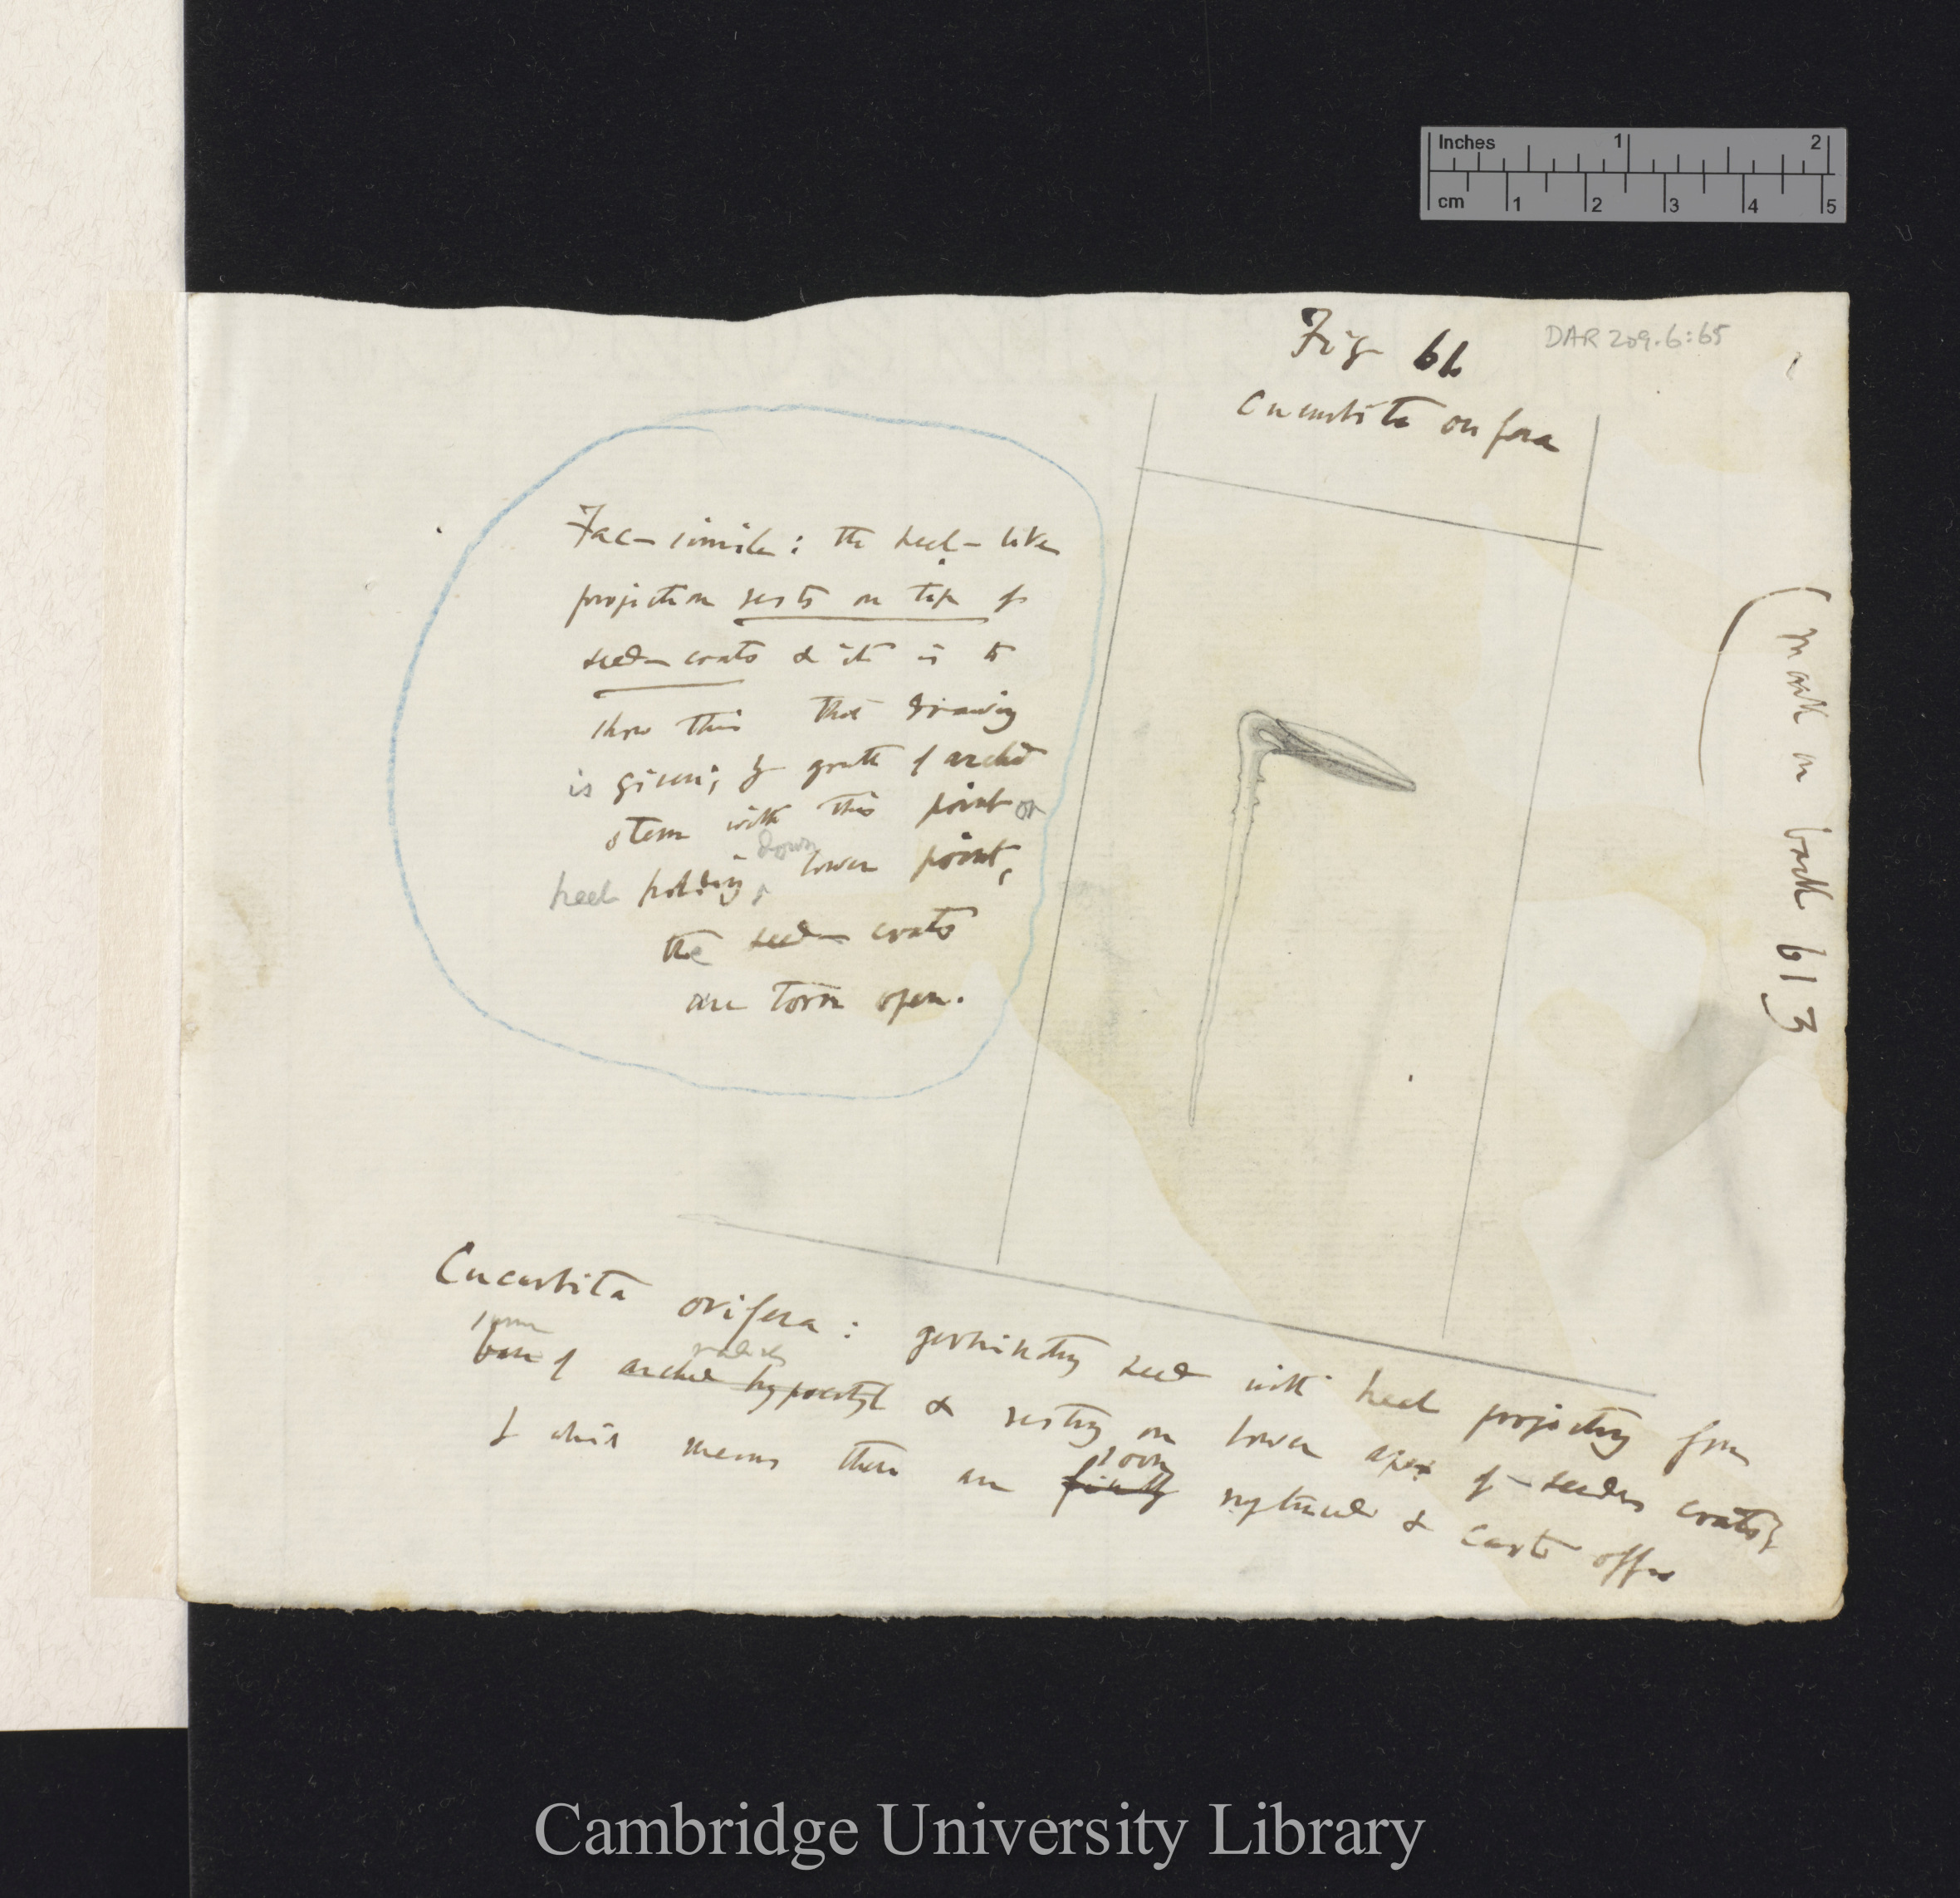 Inches 1 2
cm 1 2 3 4 5
DAR 209.6:65
Fig 61
Cucurbita ovifera
Fac-simile: the heel-like
projection rests on tip of
seed-coats & it is to
show this that drawing
is given; by growth of arched
stem with this point or
down
heel holding lower point,
the seed-coats
are torn open.
(Mark on back 613
Cucurbita ovifera: germinating seed with heel projecting from
radicle
base of arched hypocotyl & resting on lower apex of seed coats,
soon
by which means these are finally ruptured & cast off
Cambridge University Library